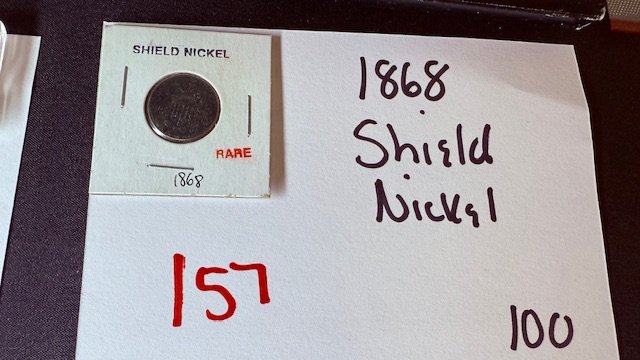 SHIELD NICKEL
RARE
1868
1868
Shield
Nickel
157
100